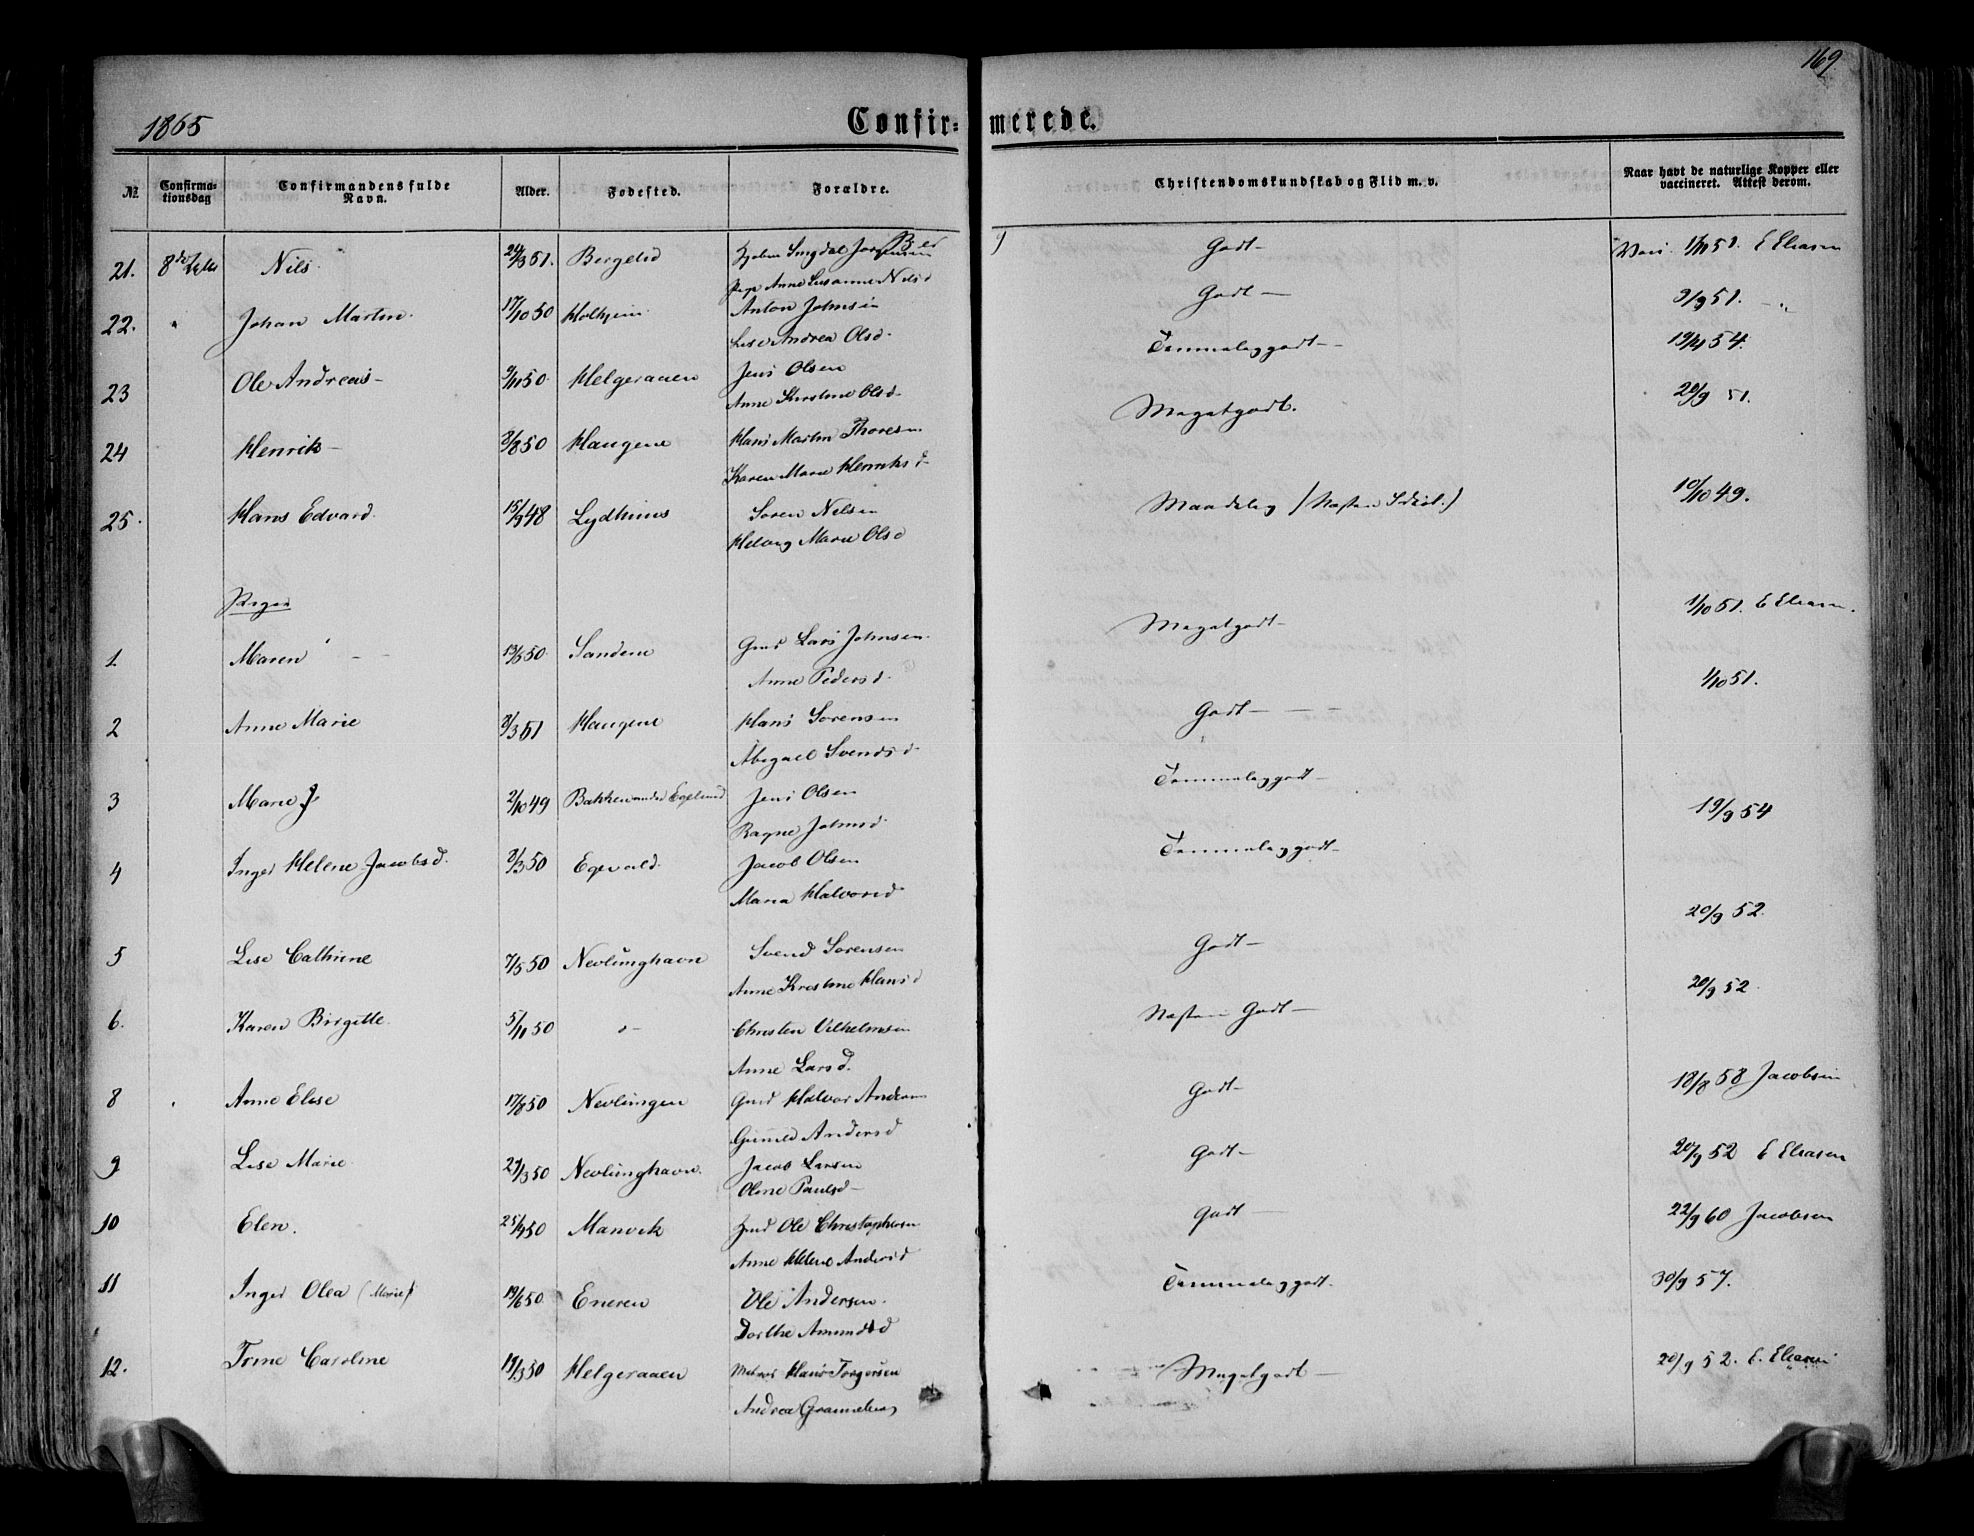 169
1865
Confir-merede.
№ Confirma-tionsdag Confirmandens fulde Navn. Alder. Fødested. Forældre. Christendomskundskab og Flid m. v. Naar havt de naturlige Kopper eller vaccineret. Attest derom.
21. 8de Nils 24/3 51. Bergelid Godt- 51. E Eliasen
Pige Anne Susanne Nilsd
22. " Johan Martin. 17/10 50 Holhjem Anton Johnsen Godt- 9/9 51. - "
Lise Andrea Olsd.
23 Ole Andreas- 9/11 50. Helgeraaen Jens Olsen Temmeliggodt- 19/11 54.
Anne Kirstine Olsd.
24 Henrik- 3/8 50 Haugene Hans Martin Thoresen Megetgodt. 20/9 51.
Karen Marie Henriksd-
25. Hans Edvard. 15/9 48 Lydhuus Søren Nilsen Maadelig (Næsten ) 10/10 49.
Helvig Marie Olsd
Piger
1 Maren - - 13/5 50. Sandene Gmd Lars Johnsen. Megetgodt- 1/10 51. E Eliasen.
Anne Pedersd.
2 Anne Marie 3/3 51 Haugene Hans Sørensen Godt- - - 1/10 51.
Abigael Svendsd.
3 Marie J 2/10 49 Bakken under Egelund Jens Olsen Temmeliggodt-
Ragne Johnsd.
4 Inger Helene Jacobsd. 3/3 50 Eqevald. Jacob Olsen Temmeliggodt- 19/9 54
Maria Halvorsd
5 Lise Cathrine 7/5 50 Nevlunghavn Svend Sørensen Godt- 20/9 52.
Anne Kirstine Hansd
6. Karen Birgitte. 5/11 50 Christen Vilhelmsen Næsten Godt- 20/9 52
Anne Larsd.
8 Anne Elise 17/8 50 Nevlungen Gmd Halvor Andersen Godt- 18/8 58 Jacobsen
Gunild Andersd
9 Lise Marie 29/3 50 Nevlunghavn. Jacob Larsen Godt- 20/9 52 E Eliasen
Oline Paulsd-
10 Elen. 25/9 50 Manvik Ole Christophersen Godt- 22/9 60 Jacobsen
Anne Helene Andersd
11 Inger Olea (Marie) 19/6 50. Eneren Ole Andersen. Temmeliggodt. 30/9 57.
Dorthe Amundsd
12. Trine Caroline 19/3 50 Helgeraaen Hans Torgersen Megetgodt- 20/9 52. E. Eliasen
Andrea